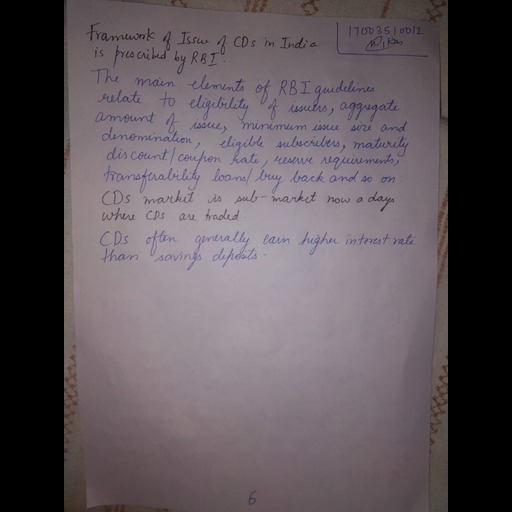 Framework of Issue of CDs in India
is prescribed by RBI.
17003510012
The main elements of RBI guidelines
relate to eligibility of issuers, aggregate
amount of issue, minimum issue size and
denomination, eligible subscribers, maturity
discount/coupon rate, reserve requirements,
transferability loans/buy back and so on.
CDs market is sub-market now a days
where CDs are traded
CDs often generally earn higher interest rate
than savings deposits.
6